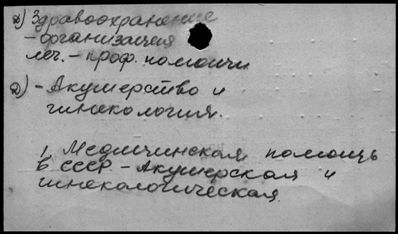 1) Здравоохранение
- организация
леч. - проф. помощи
2) - Акушерство и
гинекология.
1. Медицинская помощь
в СССР - Акушерская и
гинекологическая